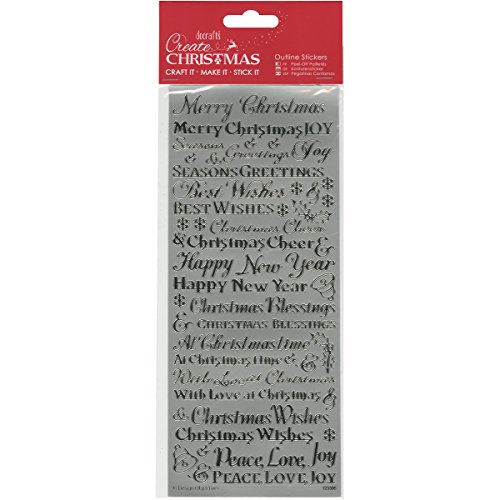 docrafts
Create
CHRISTMAS
CRAFT IT • MAKE IT • STICK IT
Outline Stickers
Peel-Off Pailletés
Konturensticker
Pegatinas Contornos
Merry Christmas
Merry Christmas JOY
Seasons & Joy
& Greetings
SEASONS GREETINGS
Best Wishes &
BEST WISHES
Christmas Cheer
& Christmas Cheer &
Happy New Year
Happy New Year
Christmas Blessings
& CHRISTMAS BLESSINGS
At Christmas time
At Christmas time &
With Love at Christmas
With Love at Christmas &
& Christmas Wishes
Christmas Wishes
& Peace, Love, Joy
& PEACE, LOVE, JOY